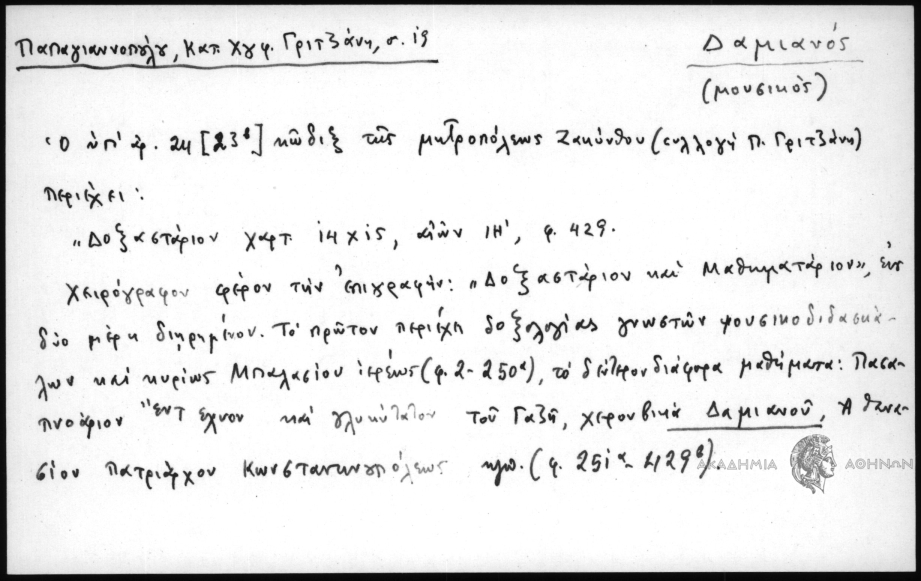 Παπαγιαννοπούλου, Κατ. Χγφ. Γριτζάνη, σ. 19
Δαμιανός
(μουσικὸς)
Ὁ ὑπ' ἀρ. 24 [23β] κῶδιξ τῆς μητροπόλεως Ζακύνθου (συλλογὴ Π. Γριτζάνη)
περιέχει:
"Δοξαστάριον χαρτ. 14 x 15, αἰὼν ΙΗ', φ. 429.
Χειρόγραφον φέρον τὴν ἐπιγραφήν: "Δοξαστάριον καὶ Μαθηματάριον", εἰς
δύο μέρη διῃρημένον. Τὸ πρῶτον περιέχει δοξολογίας γνωστῶν μουσικοδιδασκά-
λων καὶ κυρίως Μπαλασίου ἱερέως (φ. 2 - 250α), τὸ δεύτερον διάφορα μαθήματα: Πασα-
πνοάριον "ἔντεχνον καὶ γλυκύτατον τοῦ Γαζῆ, χερουβικὰ Δαμιανοῦ, Ἀθανα-
σίου Πατριάρχου Κωνσταντινουπόλεως κλπ. (φ. 251α - 429β)
ΑΚΑΔΗΜΙΑ ΑΘΗΝΩΝ